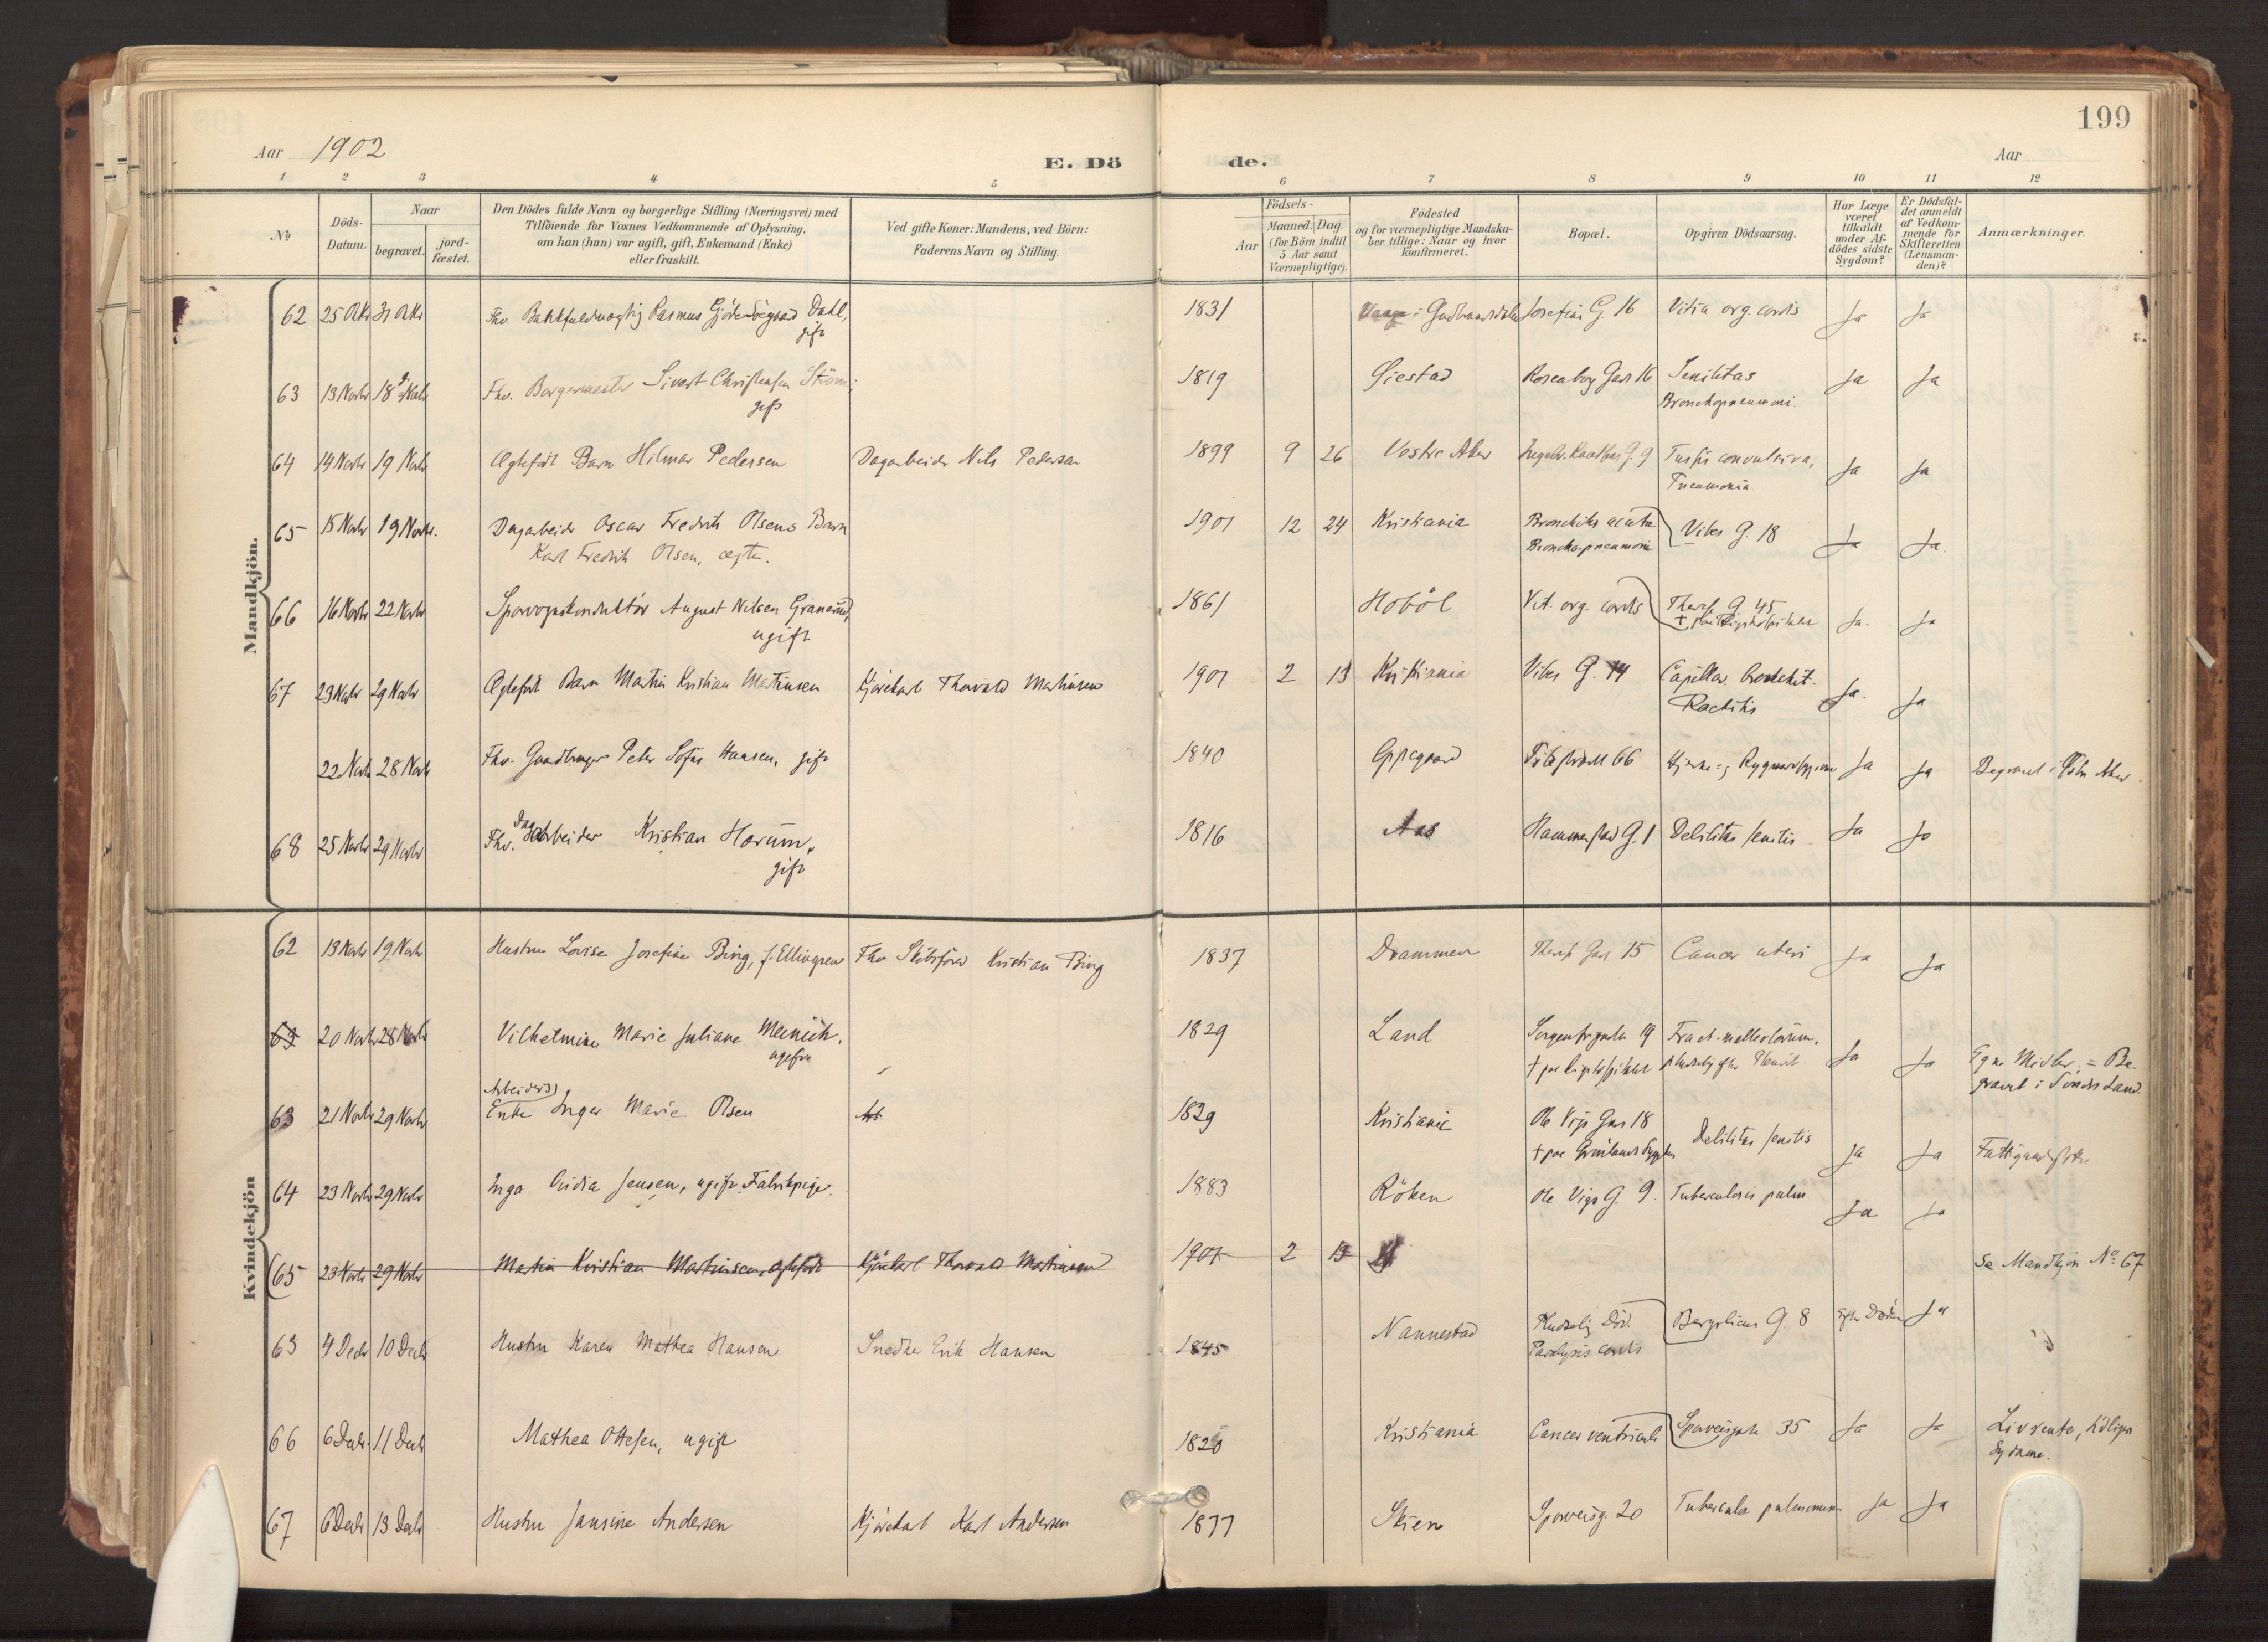 199
Aar 1902
E. Dö
de.
Aar
1 2 3 4 5 6 7 8 9 10 11 12
No
Döds-
Datum.
Naar
begravet.
jord-
fæstet.
Den Dödes fulde Navn og borgerlige Stilling (Næringsvei) med
Tilföiende for Voxnes Vedkommende af Oplysning,
om han (hun) var ugift, gift, Enkemand (Enke)
eller fraskilt.
Ved gifte Koner: Mandens, ved Börn:
Faderens Navn og Stilling.
Födsels-
Aar
Maaned.
Dag.
(for Börn indtil
5 Aar samt
Værnepligtige).
Födested
og for værnepligtige Mandska-
ber tillige: Naar og hvor
konfirmeret.
Bopæl.
Opgiven Dödsaarsag.
Har Læge
været
tilkaldt
under Af-
dödes sidste
Sygdom?
Er Dödsfal-
det anmeldt
af Vedkom-
mende for
Skifteretten
(Lensman-
den)?
Anmærkninger.
Mandkjön.
62 25 Oktr 31 Oktr Fhv. Rasmus Dahl, 1831 i Gudbrandsdalen Josefine G. 16 Vitia org. cordis Ja Ja
gift
63 13 Novbr 18 Novbr Fhv. Borgermester Sivert Christensen Ström, 1819 Öiestad Rosenborg Gad 16 Senilitas Ja Ja
gift Bronchopneumoni.
64 14 Novbr 19 Novbr Ægtefødt Barn Hilmar Pedersen Dagarbeider Nils Pedersen 1899 9 26 Vestre Aker G. 9 Tussis convulsiva, Ja Ja
Pneumonia
65 15 Novbr 19 Novbr. Dagarbeider Oscar Fredrik Olsens Barn 1901 12 24 Kristiania Bronchitis acuta Vibes G. 18 Ja Ja.
Karl Fredrik Olsen, ægte. Bronchopneumoni
66 16 Novbr 22 Novbr Sporvognskonduktör August Nilsen Granerud, 1861 Hoböl Vit. org. cordis Theres. G. 45 Ja. Ja
ugift † paa Rigshospitalet
67 23 Novbr 29 Novbr Ægtefødt Barn Martin Kristian Martinsen Kjörekarl Thorvald Martinsen 1901 2 13 Kristiania Vibes G. 14 Capillær bronchit. Ja. Ja
Rachitis
22 Novbr 28 Novbr Fhv. Gaardbruger Peter Sofus Hansen, gift 1840 Oppegaard 66 Hjerne og Ja Ja Begravet i Östre Aker.
68 25 Novbr 29 Novbr Fhv. Dagarbeider Kristian Horüm, 1816 Aas Hammerstad G. 1 Debilitas senilis Ja Ja
gift
Kvindekjön
62 13 Novbr 19 Novbr Hustru Lovise Josefine Bing, f. Ellingsen Fhv Skibsförer Kristian Bing 1837 Drammen Theres Gad 15 Cancer uteri Ja Ja
63 20 Novbr 28 Novbr Vilhelmine Marie Juliane Meinich, 1829 Land Sorgenfrigaden 19 Fract. malleolorum, Ja Ja Egne Midler. = Be-
ugift † paa Rigshospitalet gravet i Söndre Land
Arbeider(s)
63 21 Novbr 29 Novbr Enke Inger Marie Olsen 1829 Kristiania Ole Vigs Gad 18 Debilitas senilis Ja Ja
† paa Grönlands
64 23 Novbr 29 Novbr Inga Jensen, ugift Fabrikpige. 1883 Röken Ole Vigs G. 9. Tuberculosis pulm Ja Ja
65 23 Novbr 29 Novbr Martin Kristian Martinsen, ægtefödt Kjörekarl Thorvald Martinsen 1901 2 13 Se Mandkjön No 67
65 4 Decbr 10 Decbr Hustru Karen Mathea Hansen Snedker Erik Hansen 1845 Nannestad Pludselig Död. Bergslien G. 8 Efter Döden Ja
Paralysis cordis
66 6 Decbr. 11 Decbr Mathea Ottesen, ugift 1820 Kristiania Cancer ventriculi Sporveisgade 35 Ja Ja Livrente,
67 6 Decbr 13 Decbr Hustru Jansine Andersen Kjörekarl Karl Andersen 1877 Skien Sporveisg. 20 Tuberculos pulmonum Ja Ja